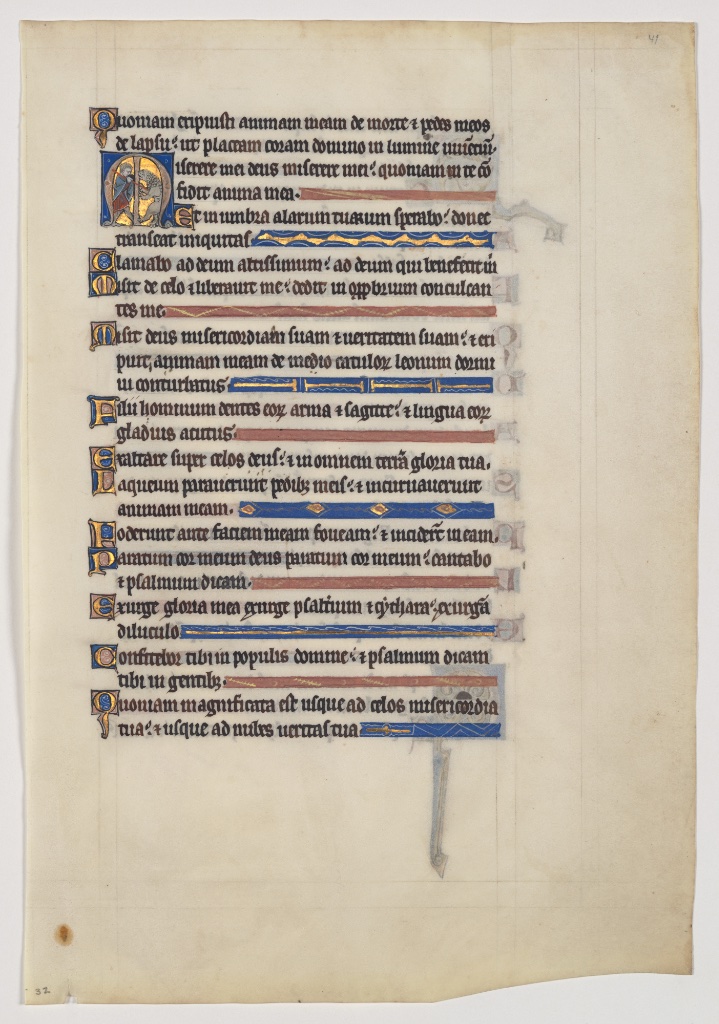 41
Quoniam eripuisti animam meam de morte ⁊ pedes meos
de lapsu: ut placeam coram domino in lumine
Miserere mei deus miserere mei: quoniam in te cō
fidit anima mea.
Et in umbra alarum tuarum sperabo: donec
transeat iniquitas
Clamabo ad deum altissimum: ad deum qui benefecit m
Misit de celo ⁊ liberavit me: dedit in opprbrium conculcan
tes me.
Misit deus misericordiam suam ⁊ veritatem suam: ⁊ eri
puit animam meam de medio catuloꝝ leonum dormi
vi conturbatus
Filii hominum dentes eoꝝ arma ⁊ sagitte: ⁊ lingua eoꝝ
gladius acutus.
Exaltare super celos deus: ⁊ in omnem terrā gloria tua.
Laqueum paraverunt pedibꝫ meis: ⁊ incurvaverunt
animam meam.
Foderunt ante faciem meam foveam: ⁊ incider̄t in eam.
Paratum cor meum deus paratum cor meum: cantabo
⁊ psalmum dicam.
Exurge gloria mea exurge psaltium ⁊ cythara: exurgā
diluculo
Confitebor tibi in populis domine: ⁊ psalmum dicam
tibi in gentibꝫ.
Quoniam magnificata est usque ad celos misericordia
tua: ⁊ usque ad nubes veritas tua
32